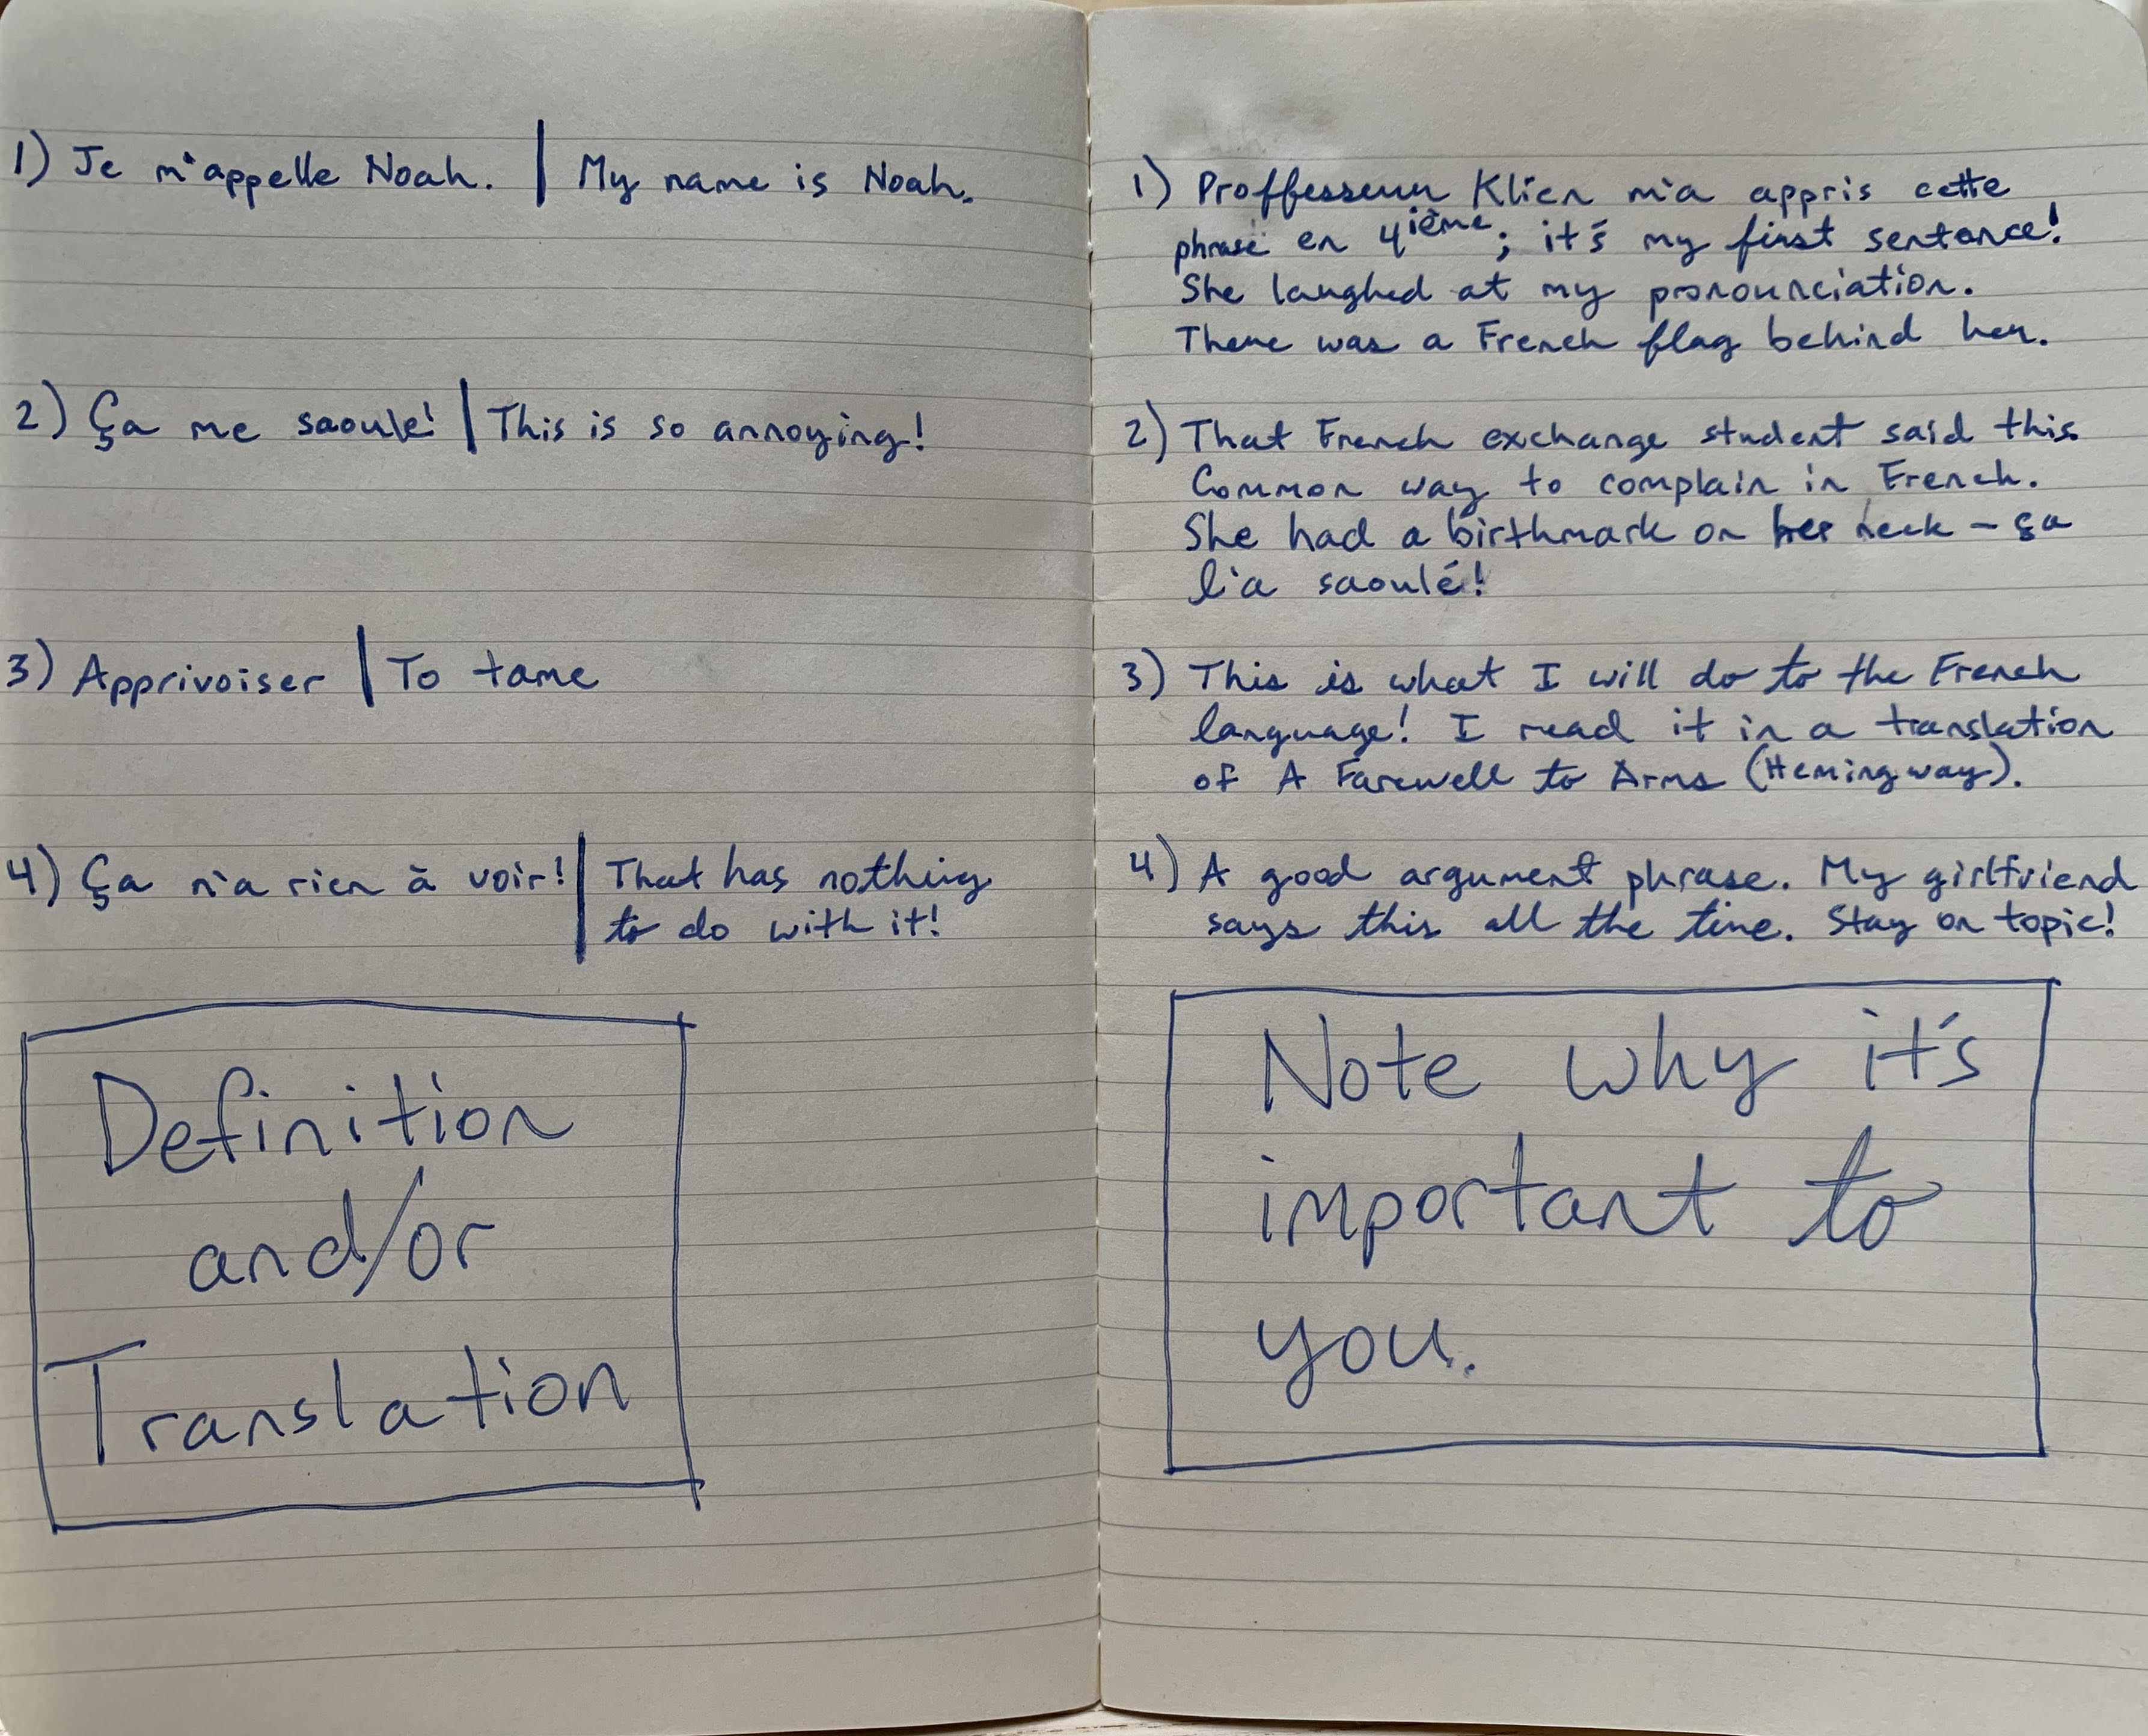 1) Je m'appelle Noah. | My name is Noah.
2) Ça me saoule! | This is so annoying!
3) Apprivoiser | To tame
4) Ça n'a rien à voir! | That has nothing
to do with it!
Definition
and/or
Translation
1) Proffesseur Klien m'a appris cette
phrase en 4ième; it's my first sentence!
She laughed at my pronounciation.
There was a French flag behind her.
2) That French exchange student said this.
Common way to complain in French.
She had a birthmark on her neck - ça
l'a saoulé!
3) This is what I will do to the French
language! I read it in a translation
of A Farewell to Arms (Hemingway).
4) A good argument phrase. My girlfriend
says this all the time. Stay on topic!
Note why it's
important to
you.